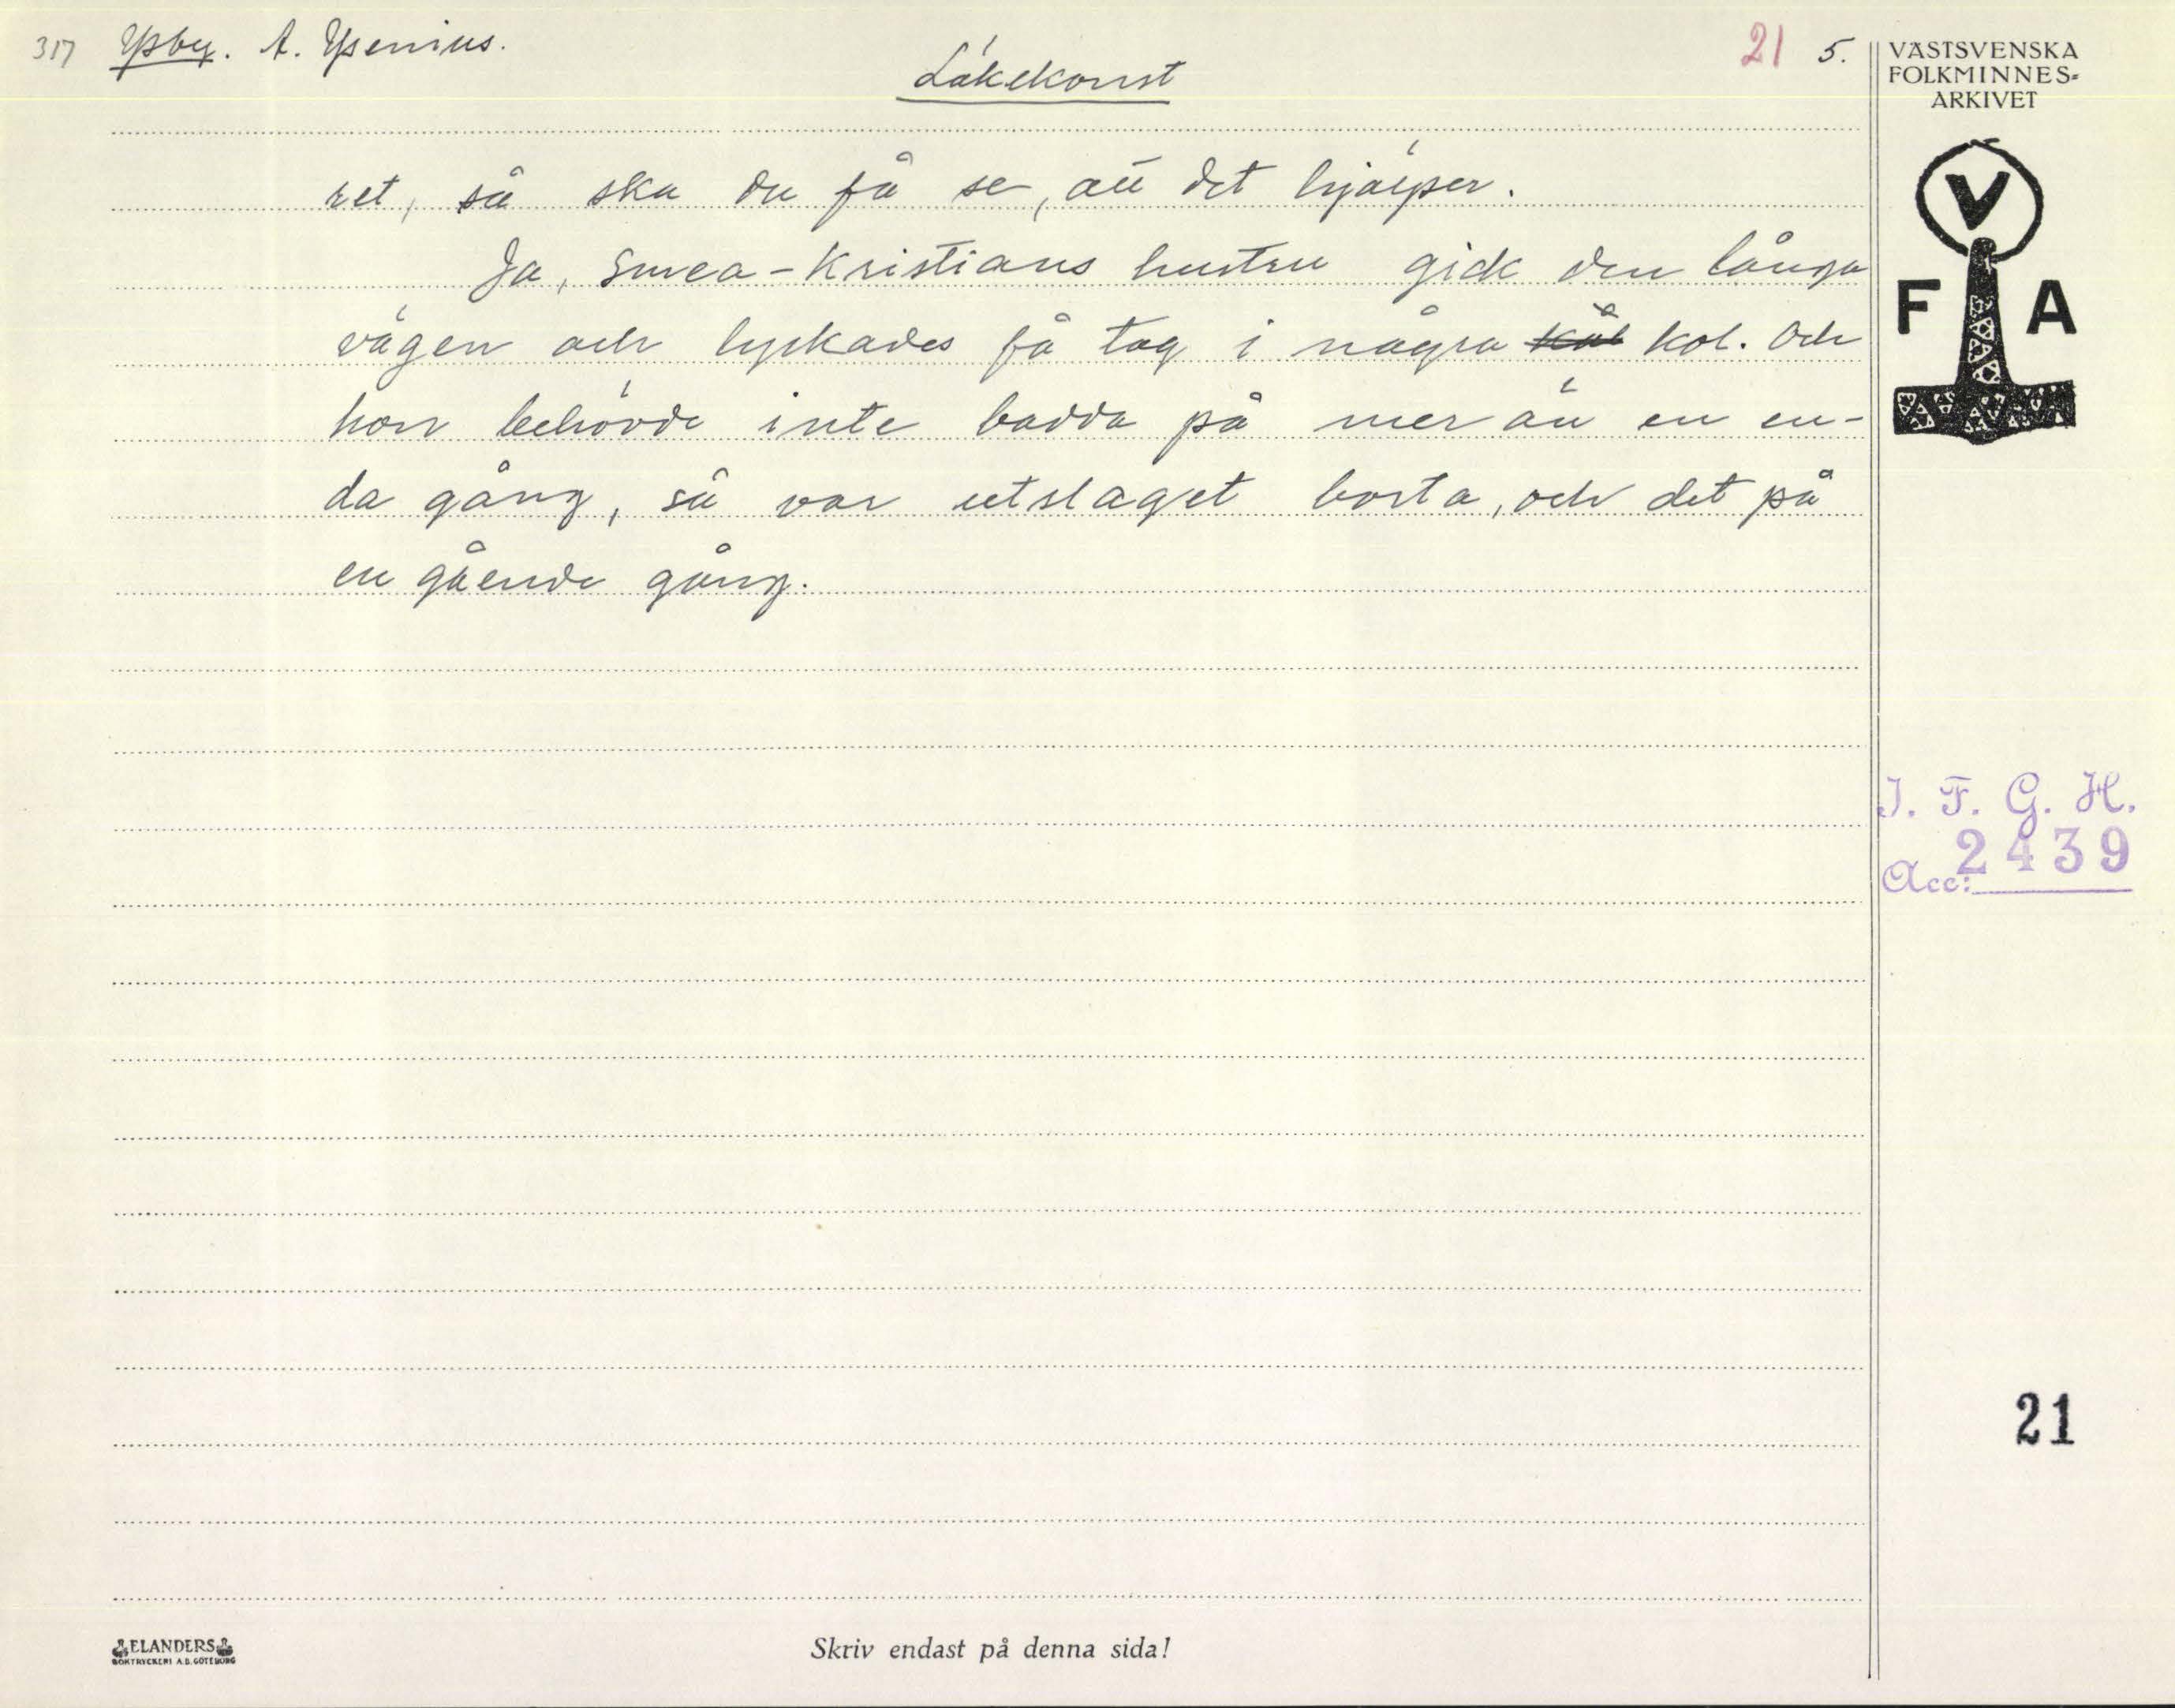 317 Ysby. A. Ysenius.
21 5.
Läkekonst
ret, så ska du få se, att det hjälper.
Ja, Smea-Kristians hustru gick den långa
vägen och lyckades få tag i några kål kol. Och
hon behövde inte badda på mer än en en-
da gång, så var utslaget borta, och det på
en gående gång.
VÄSTSVENSKA
FOLKMINNES-
ARKIVET
V
F A
I. F. G. H.
Acc: 2439
21
ELANDERS
BOKTRYCKERI A.B. GÖTEBORG
Skriv endast på denna sida!